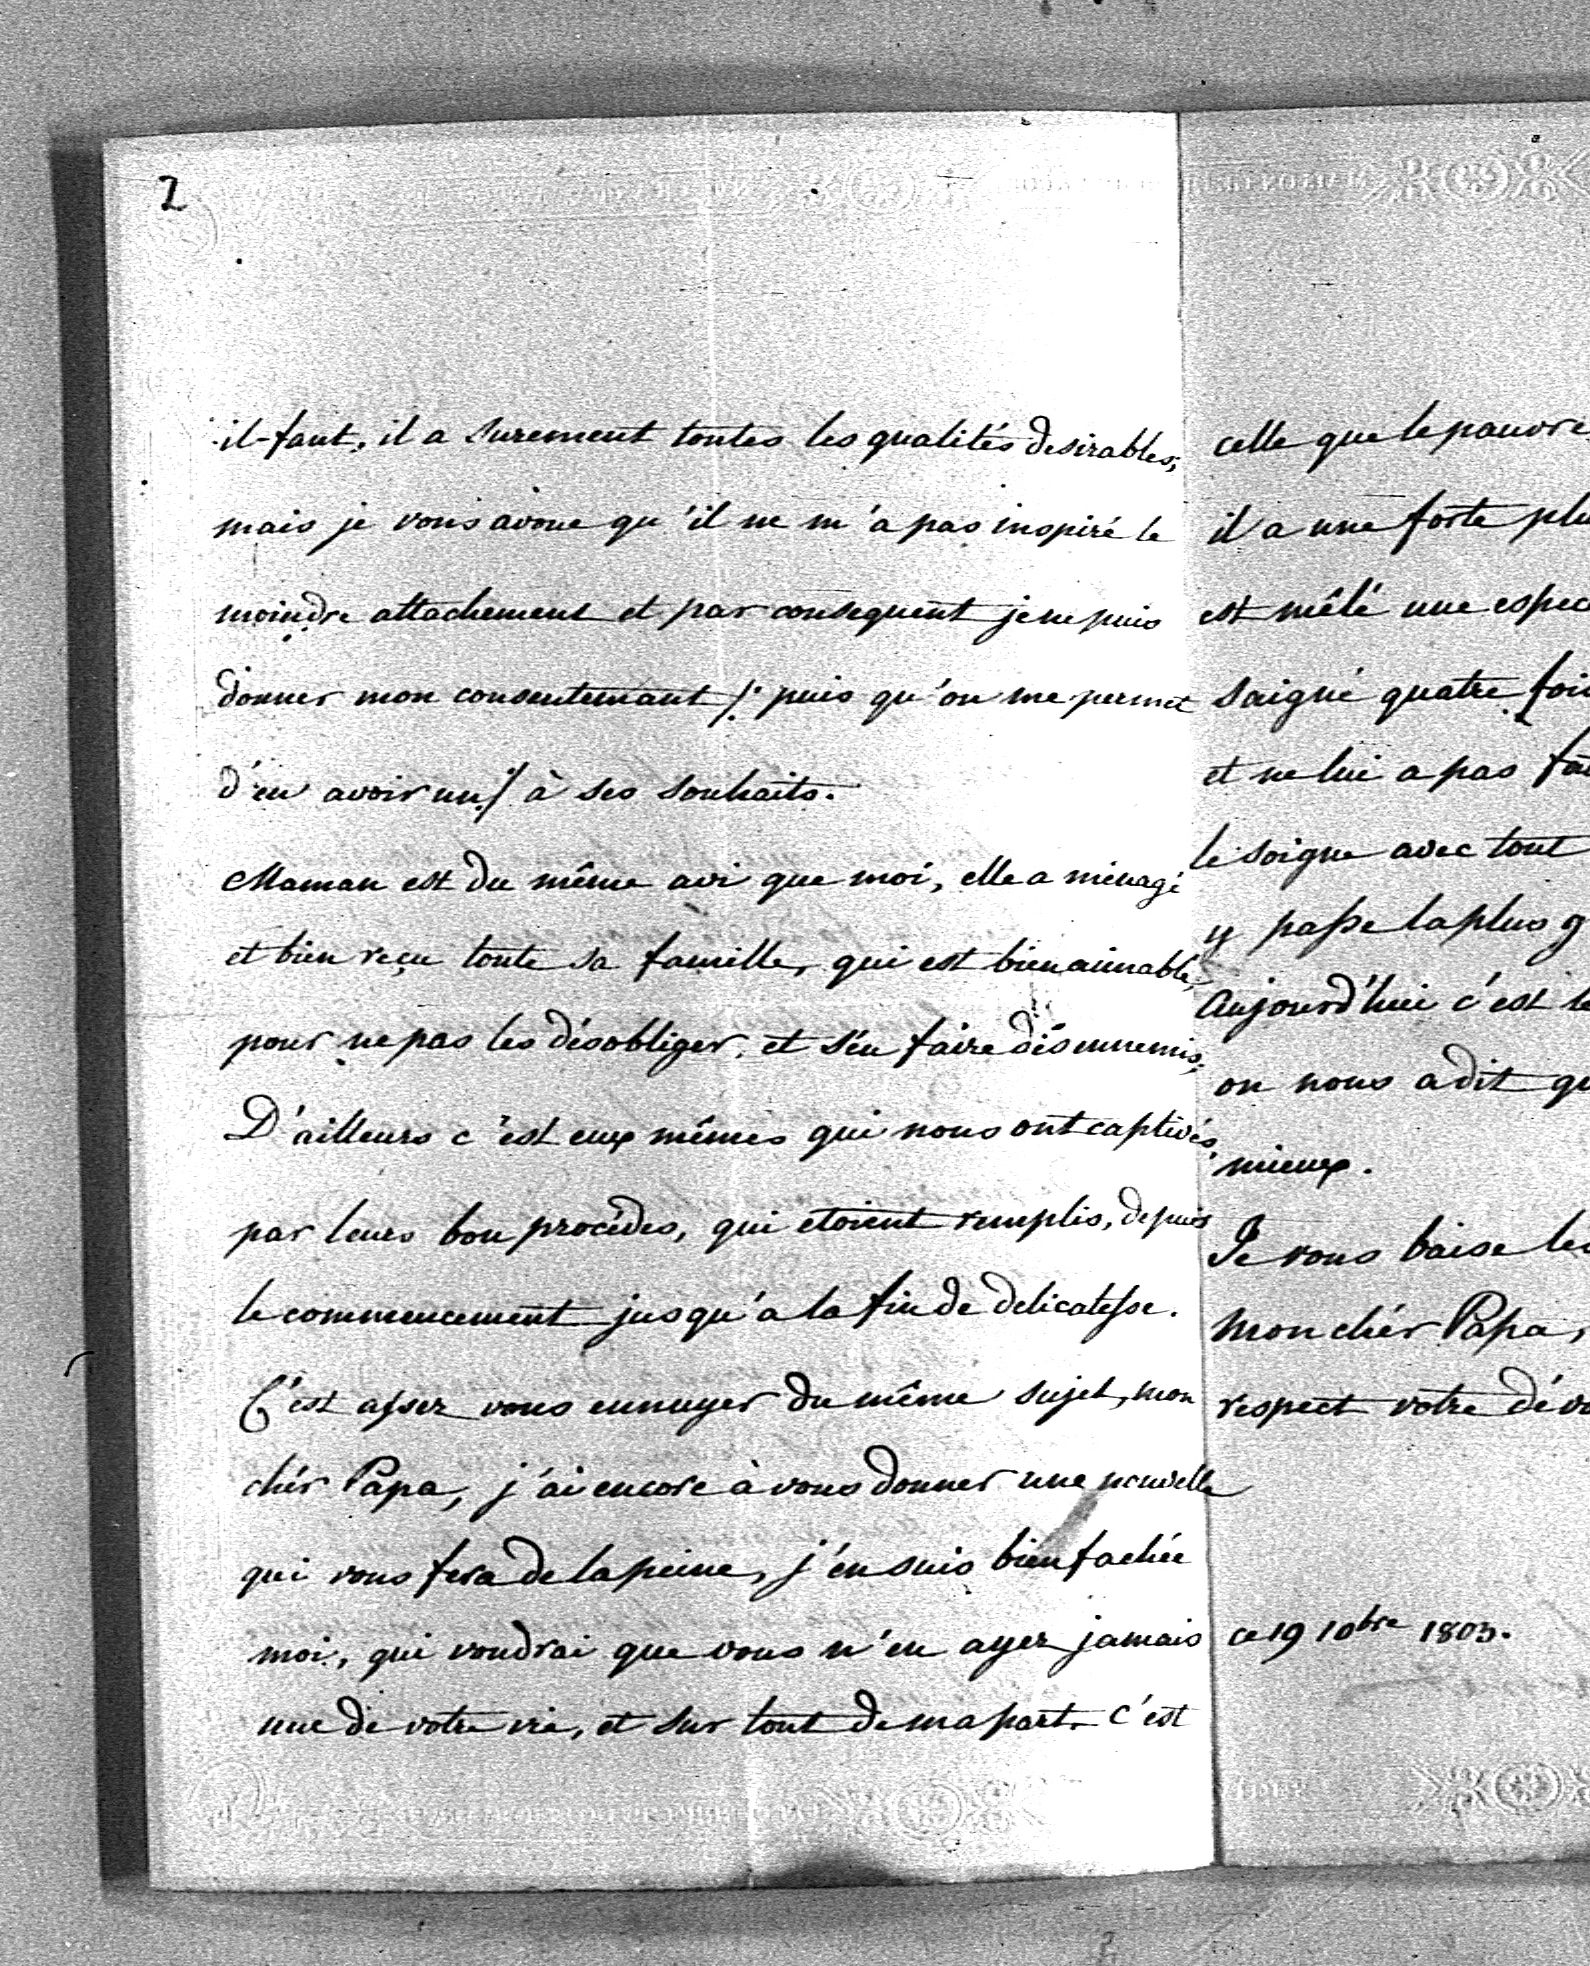 2
il-faut, il a surement toutes les qualités desirables,
mais je vous avoue qu'il ne m'a pas inspiré le
moindre attachement et par consequent je ne puis
donner mon consentemant /: puis qu'on me permet
d'en avoir un :/ à ses souhaits.
Maman est du même avi que moi, elle a ménagé
et bien reçu toute sa famille, qui est bien aimable,
pour ne pas les désobliger, et s'en faire dés ennemis;
D'ailleurs c'est eux mêmes qui nous ont captivés,
par leurs bon procédes, qui etoient remplis, depuis
le commencement jusqu'a la fin de delicatesse.
C'est assez vous ennuyer du même sujet, mon
chér Papa, j'ai encore à vous donner une nouvelle
qui vous fera de la peine, j'en suis bien fachée
moi, qui voudrai que vous n'en ayez jamais
une de votre vie, et sur tout de ma part. c'est
celle que le pauvre
il a une forte plu
est mêlé une espec
saigné quatre foi
et ne lui a pas fa
le soigne avec tout
y passe la plus g
Aujourd'hui c'est le
on nous a dit qu
mieux.
Je vous baise les
mon chér Papa,
respect votre dévo
ce 19 10bre 1803.